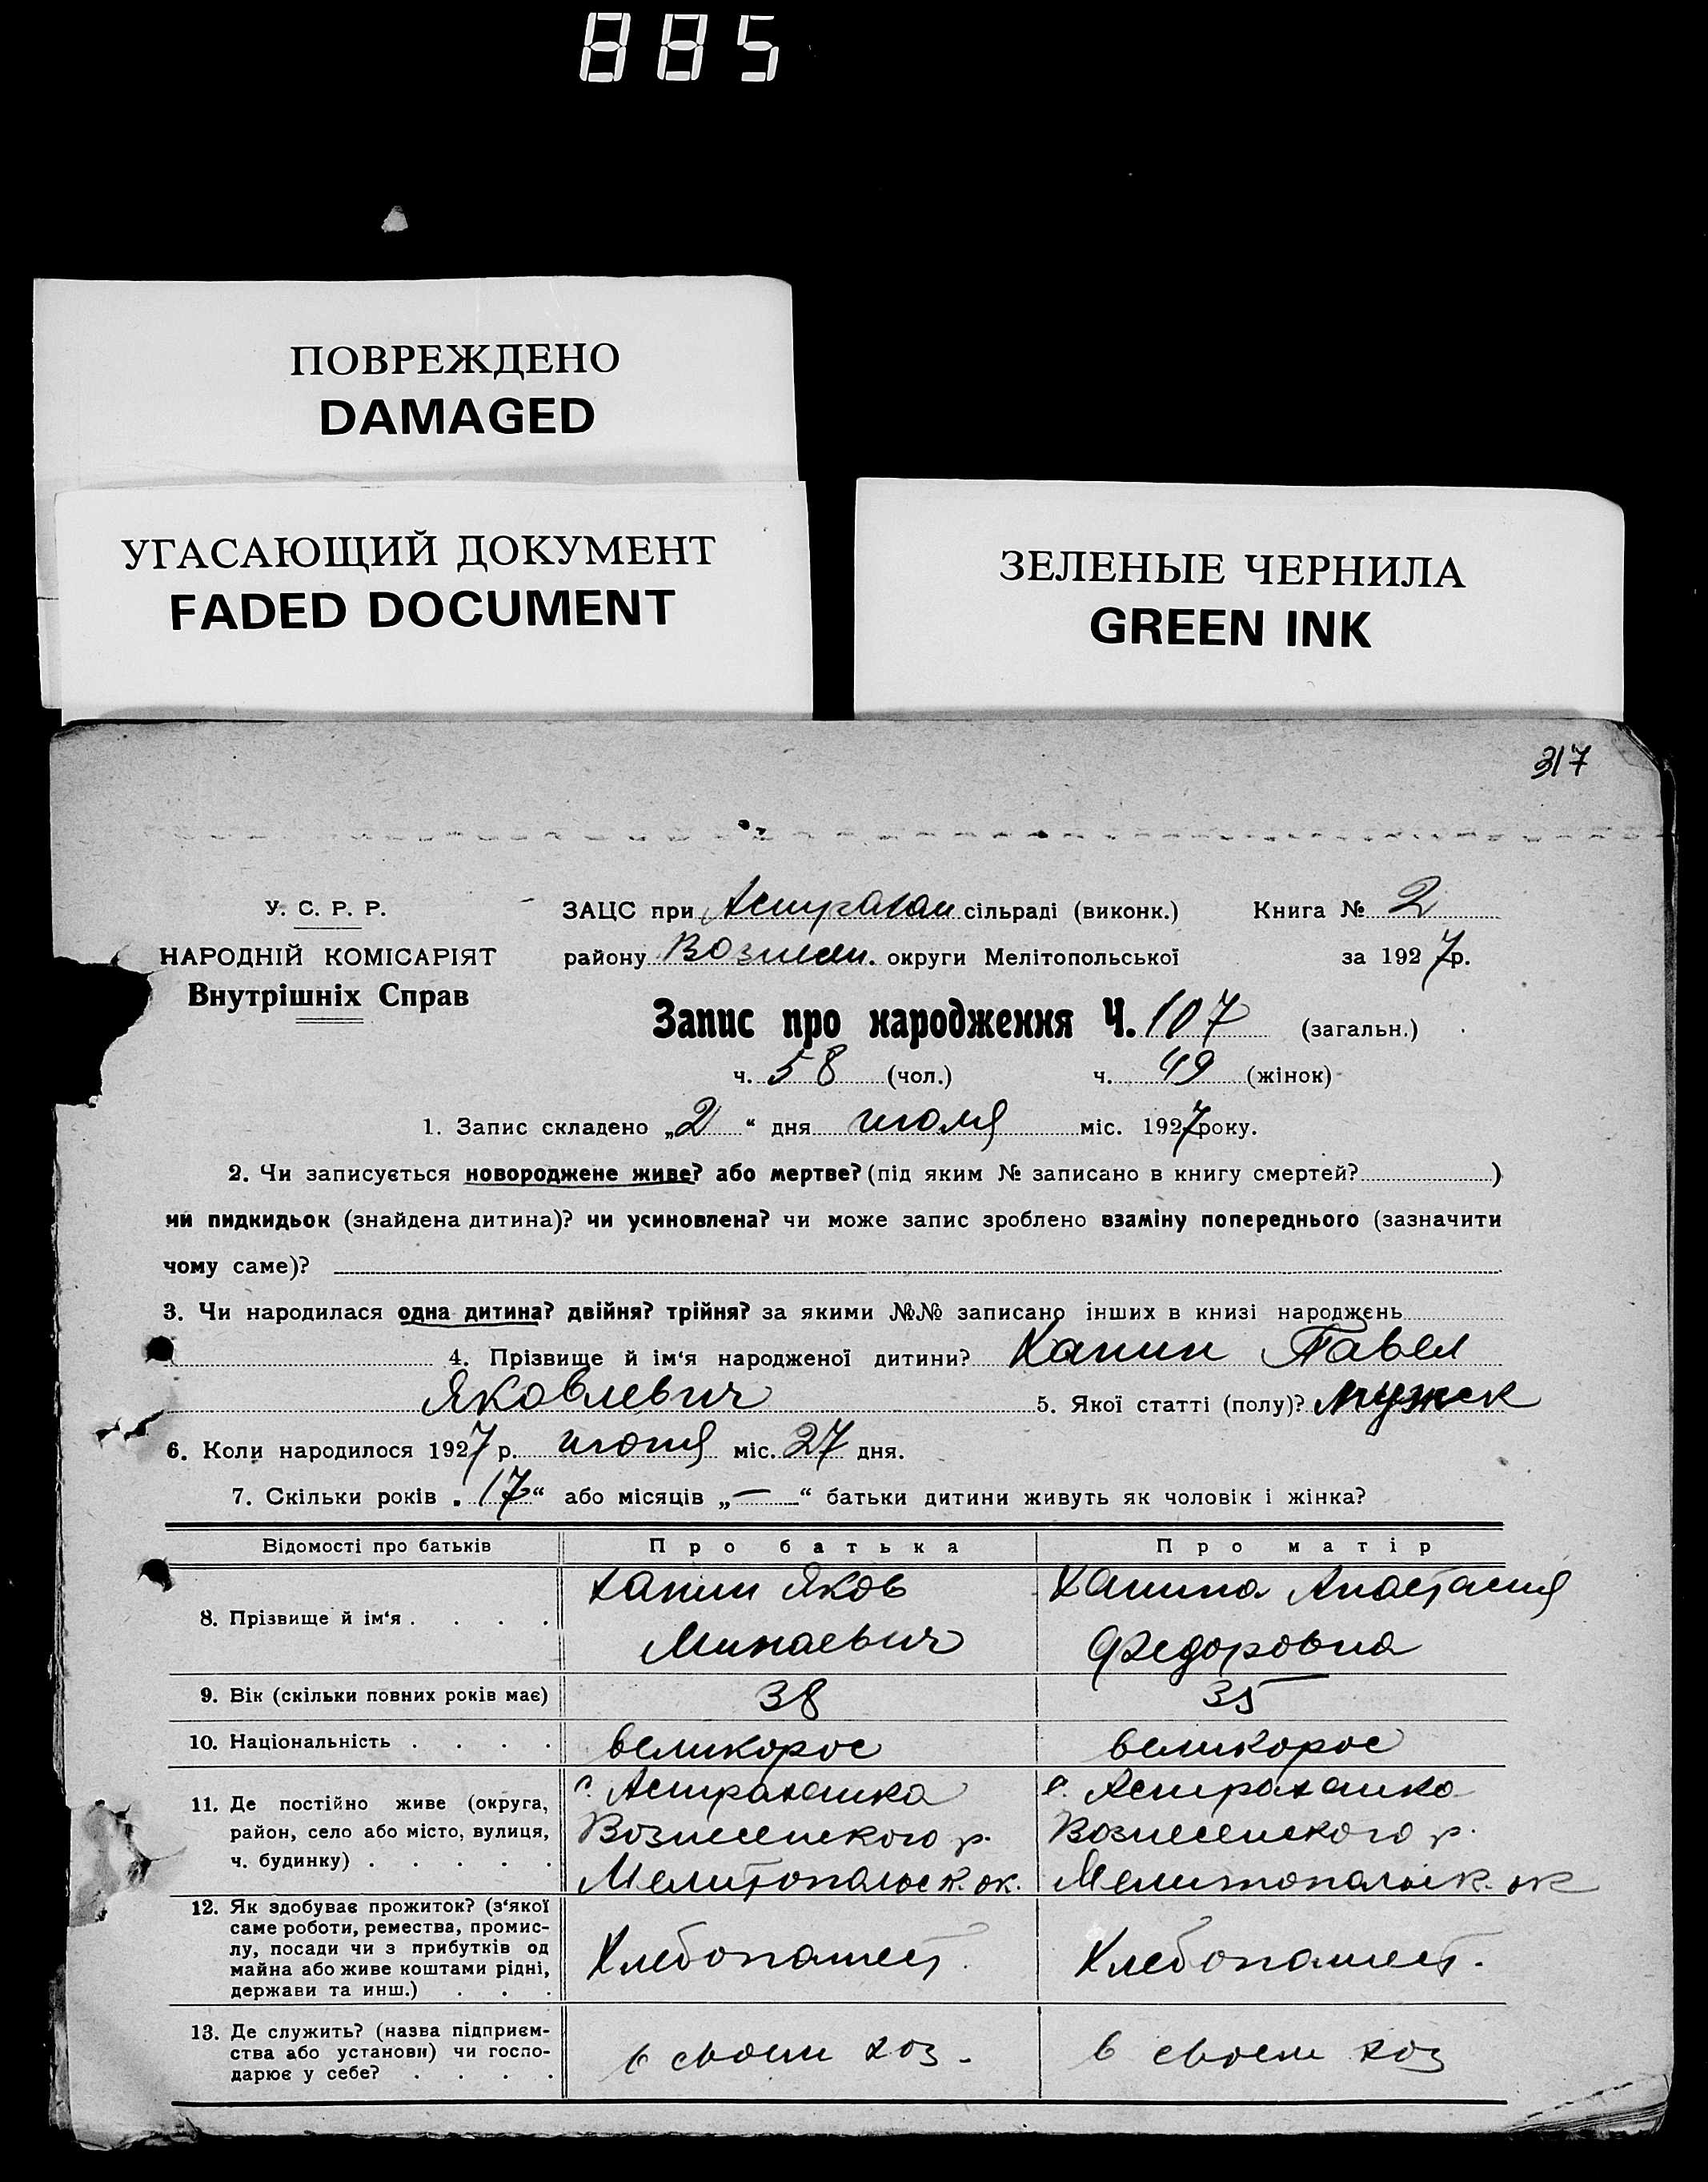 885
ПОВРЕЖДЕНО
DAMAGED
УГАСАЮЩИЙ ДОКУМЕНТ
FADED DOCUMENT
ЗЕЛЕНЫЕ ЧЕРНИЛА
GREEN INK
317
У. С. Р. Р.
НАРОДНІЙ КОМІСАРІЯТ
Внутрішніх Справ
ЗАЦС при Астрахан сільраді (виконк.) Книга № 2
району Вознесен. округи Мелітопольської за 1927 р.
Запис про народження Ч. 107 (загальн.)
ч. 58 (чол.) ч. 49 (жінок)
1. Запис складено „2“ дня июля міс. 1927 року.
2. Чи записується новороджене живе? або мертве? (під яким № записано в книгу смертей? )
чи пидкидьок (знайдена дитина)? чи усиновлена? чи може запис зроблено взаміну попереднього (зазначити
чому саме)?
3. Чи народилася одна дитина? двійня? трійня? за якими №№ записано інших в книзі народжень
4. Прізвище й ім‘я народженої дитини? Ханин Павел
Яковлевич 5. Якої статті (полу)? мужск
6. Коли народилося 1927 р. июня міс. 27 дня.
7. Скільки років „17“ або місяців „—“ батьки дитини живуть як чоловік і жінка?
Відомості про батьків Про батька Про матір
8. Прізвище й ім‘я . . . . Ханин Яков Ханина Анастасия
Минаевич Федоровна
9. Вік (скільки повних років має) 38 35
10. Національність . . . . великорос великорос
11. Де постійно живе (округа, с. Астраханка с. Астраханка
район, село або місто, вулиця, Вознесенского р. Вознесенского р.
ч. будинку) . . . . . Мелитопольск. ок. Мелитопольск. ок
12. Як здобуває прожиток? (з‘якої
саме роботи, ремества, промис-
лу, посади чи з прибутків од Хлебопашест. Хлебопашест.
майна або живе коштами рідні,
держави та инш.) . . .
13. Де служить? (назва підприєм-
ства або установи) чи госпо- в своем хоз. в своем хоз
дарює у себе? . . . .